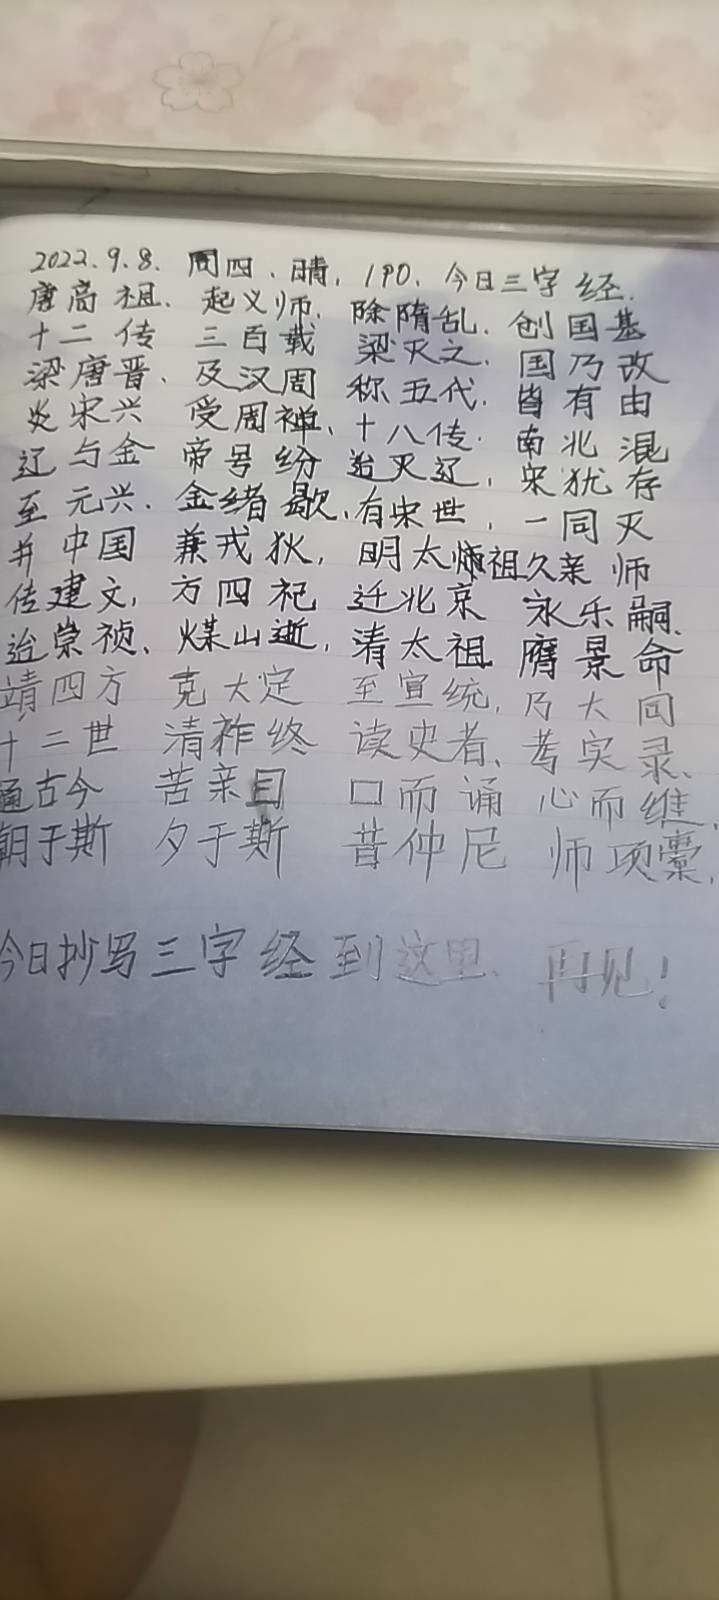 2022.9.8. 周四、晴，190、今日三字经.
唐高祖、起义师、除隋乱、创国基
十二传 三百载 梁灭之、国乃改
梁唐晋、及汉周 称五代、皆有由
炎宋兴 受周禅、十八传. 南北混
辽与金 帝号纷 迨灭辽，宋犹存
至元兴. 金绪歇、有宋世，一同灭
并中国 兼戎狄，明太祖久亲师
传建文，方四祀 迁北京 永乐嗣、
迨崇祯、煤山逝，清太祖 膺景命
靖四方 克大定 至宣统，乃大同
十二世 清祚终 读史者、考实录、
通古今 苦亲目 口而诵 心而维、
朝于斯 夕于斯 昔仲尼 师项橐，
今日抄写三字经到这里、再见！